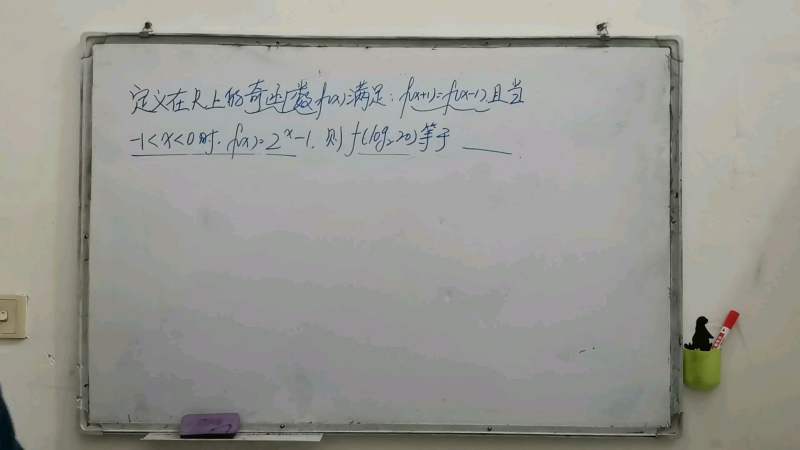 定义在R上的奇函数f(x)满足:f(x+1)=f(x-1),且当
-1<x<0时,f(x)=2^x-1,则f(log₂20)等于____